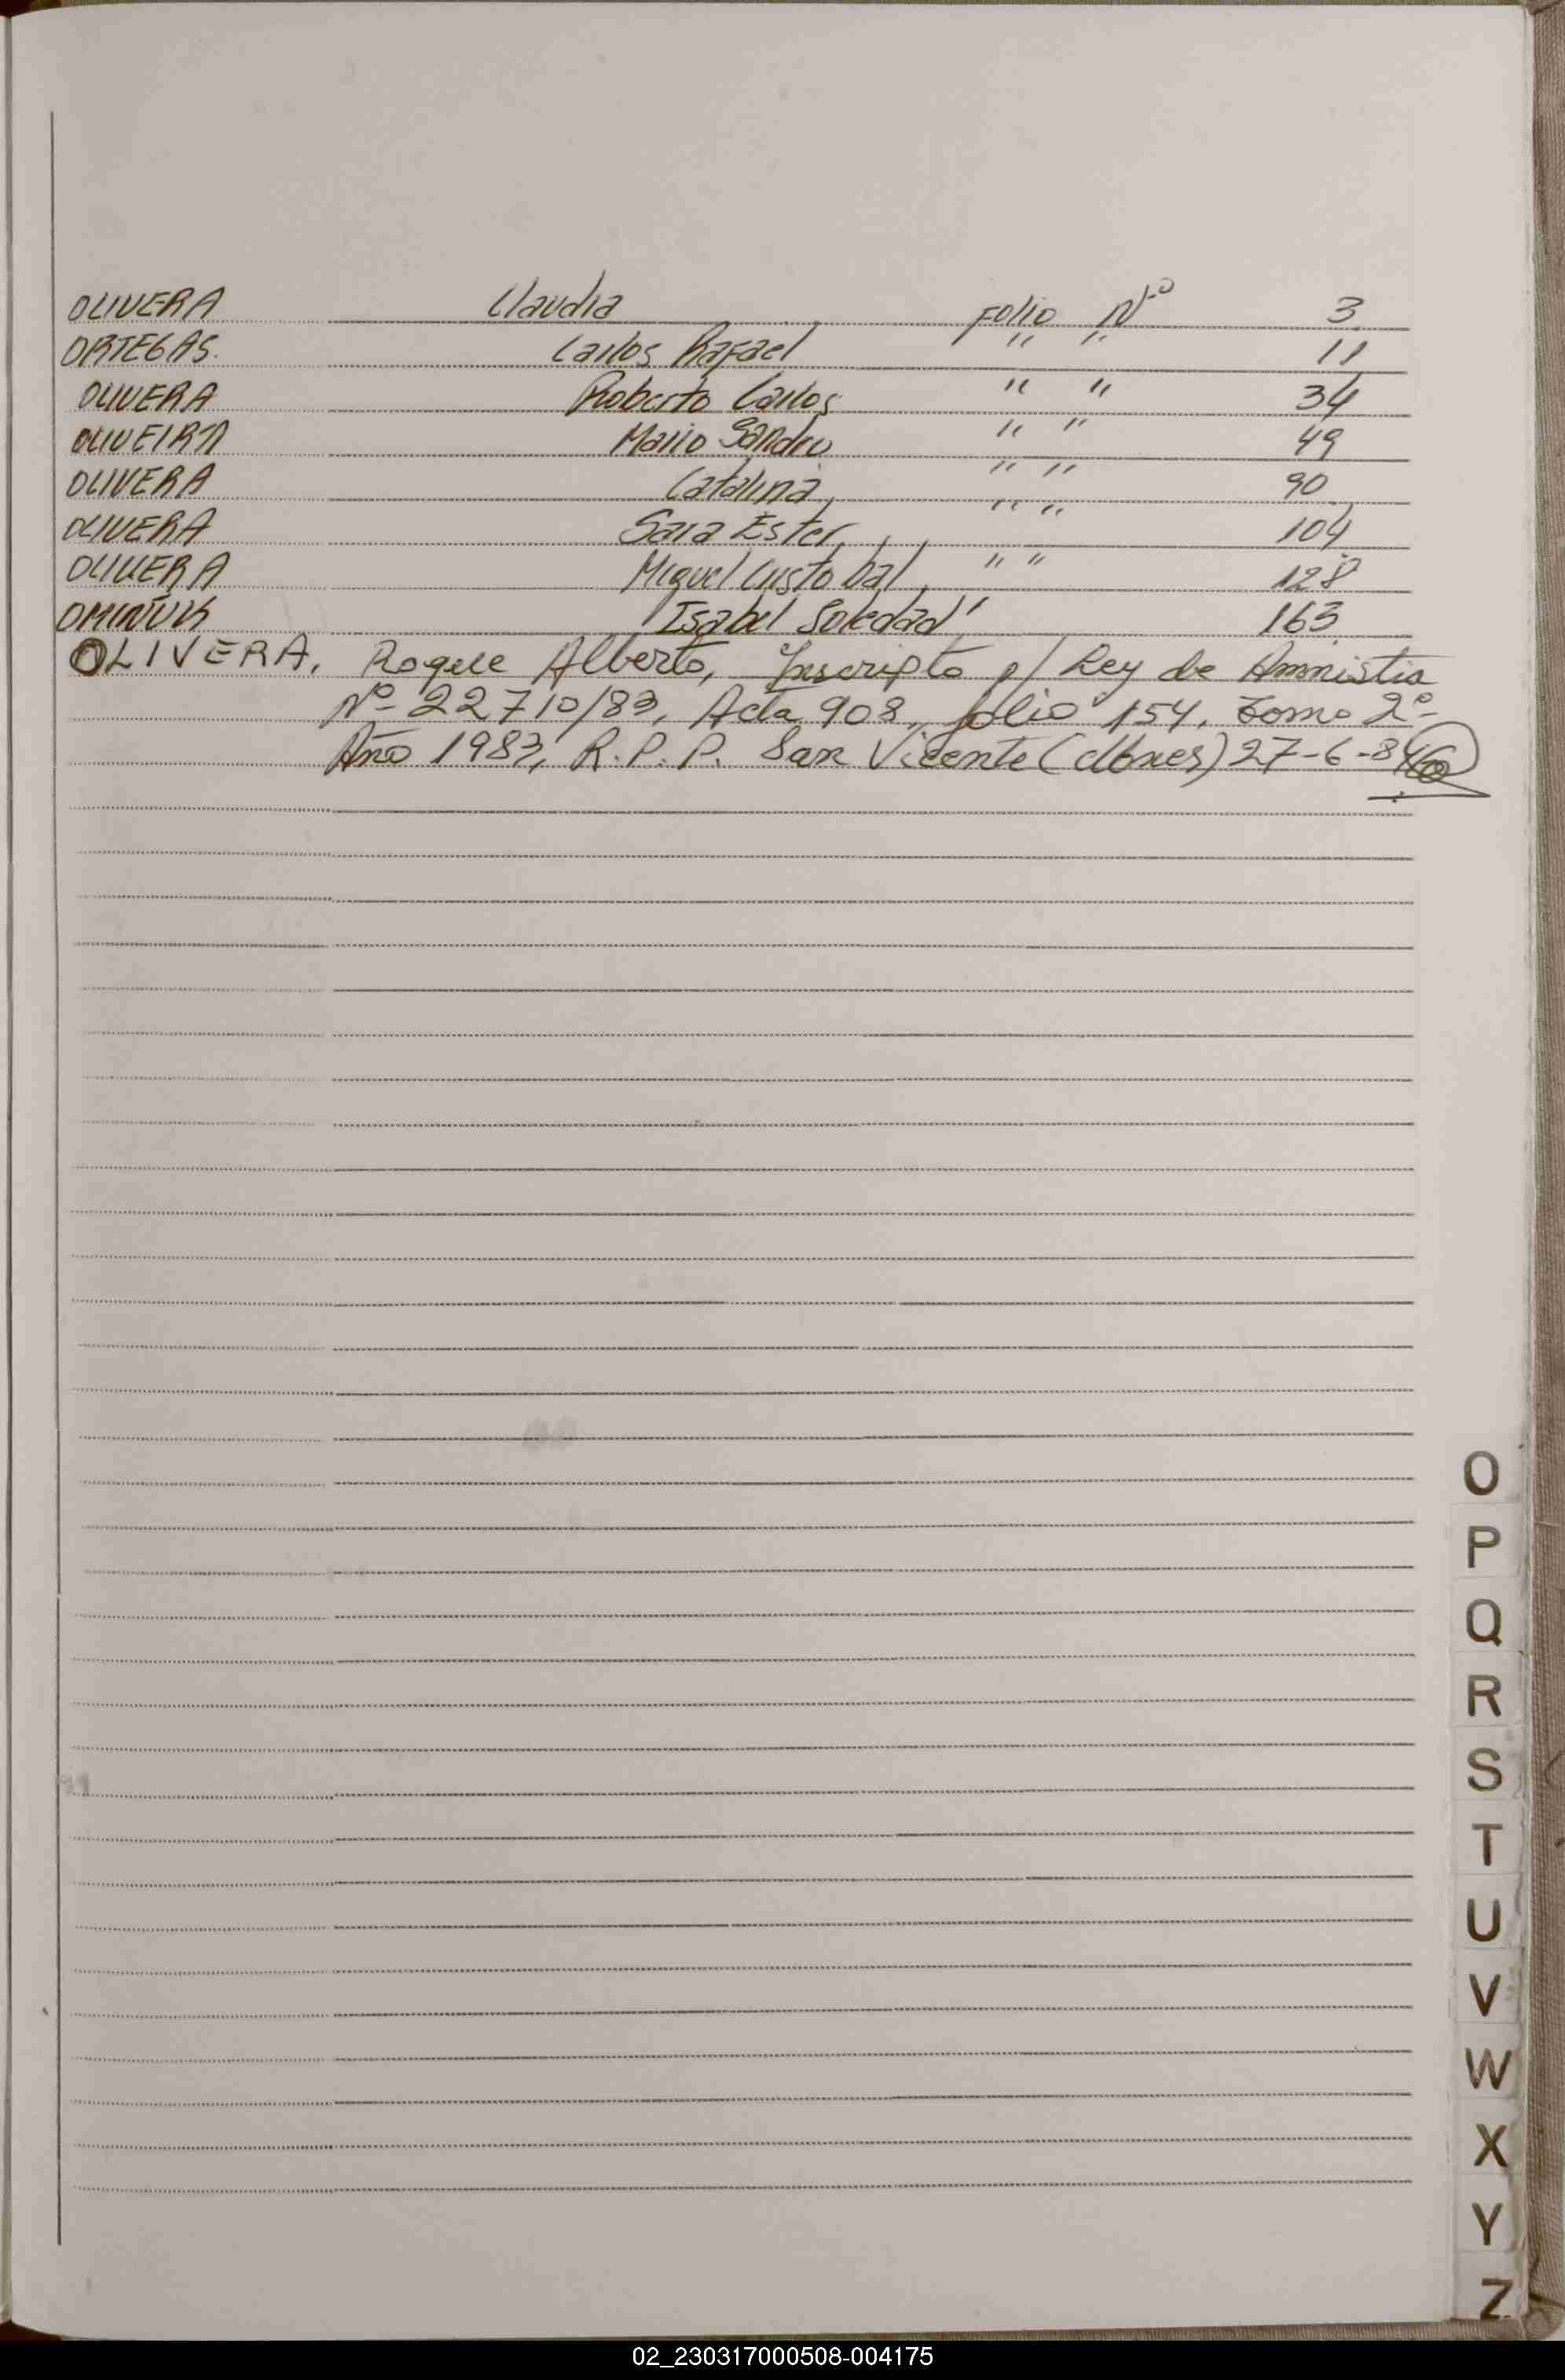 OLIVERA Claudia Folio Nº 3
ORTEGAS. Carlos Rafael " " 11
OLIVERA Roberto Carlos " " 34
OLIVEIRA Mario Sandro " " 49
OLIVERA Catalina " " 90
OLIVERA Sara Ester " " 104
OLIVERA Miguel Cristobal " " 128
Isabel Soledad 163
OLIVERA, Roque Alberto, Inscripto p/ Ley de Amnistia
Nº 22710/83, Acta 908, folio 154, Tomo 2º-
Año 1983, R.P.P. San Vicente (dbnes) 27-6-84
O
P
Q
R
S
T
U
V
W
X
Y
Z
02_230317000508-004175